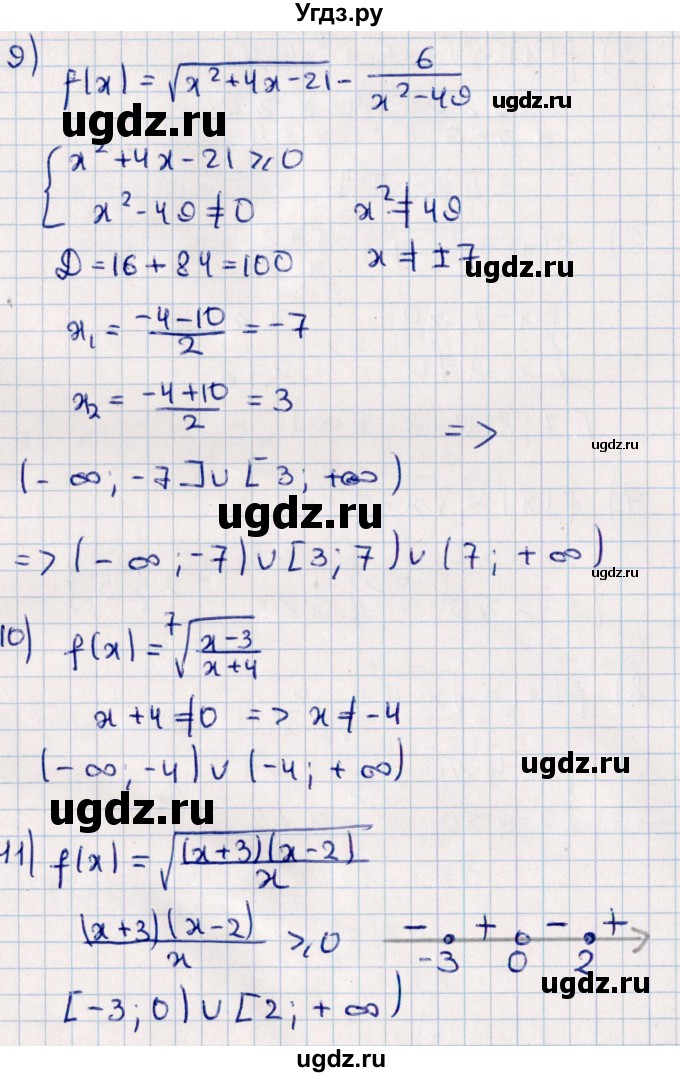 Угдз.ру
9) f(x) = √(x²+4x-21) - 6/(x²-49)
ugdz.ru
ugdz.ru
{ x²+4x-21 ⩾ 0
x²-49 ≠ 0 x² ≠ 49
Д = 16 + 84 = 100 x ≠ ±7
ugdz.ru
x₁ = (-4-10)/2 = -7
x₂ = (-4+10)/2 = 3
=>
ugdz.ru
(-∞; -7] ∪ [3; +∞)
ugdz.ru
=> (-∞; -7) ∪ [3; 7) ∪ (7; +∞)
ugdz.ru
10) f(x) = ⁷√((x-3)/(x+4))
ugdz.ru
x+4 ≠ 0 => x ≠ -4
(-∞; -4) ∪ (-4; +∞)
ugdz.ru
ugdz.ru
11) f(x) = √((x+3)(x-2)/x)
ugdz.ru
(x+3)(x-2)/x ⩾ 0 - + - +
-3 0 2
ugdz.ru
[-3; 0) ∪ [2; +∞)
ugdz.ru